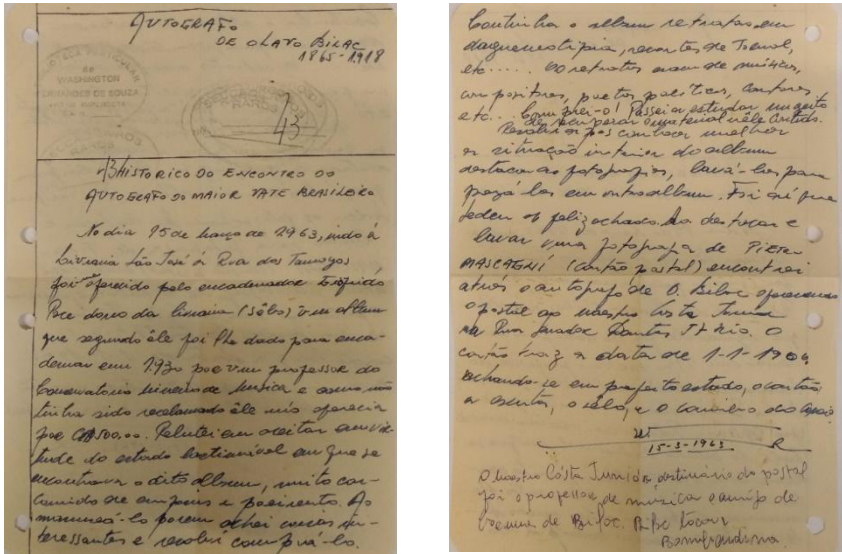 AUTOGRAFO
DE OLAVO BILAC
1865-1918
BIBLIOTECA PARTICULAR
DE
WASHINGTON
FERNANDES DE SOUZA
RAMOS
43
43 HISTORICO DO ENCONTRO DO
AUTOGRAFO DO MAIOR VATE BRASILEIRO
No dia 15 de março de 1963, indo á
Livraria São José á Rua dos Tamoyos
foi oferecido pelo encadernador
dono da livraria (sêbo) um album
que segundo êle foi lhe dado para enca-
dernar em 1930 por um professor do
Conservatorio Mineiro de Musica e como não
tinha sido reclamado êle m'o oferecia
por Cr$500,00. Relutei em aceitar em vir-
tude do estado lastimável em que se
encontrava o dito album, muito car-
comido de cupins e poeirento. Ao
manuseá-lo porem achei cousas in-
teressantes e resolvi comprá-lo.
Continha o album retratos em
daguerreotipia, recortes de Jornal,
etc.... Os retratos eram de músicos,
compositores, poetas, politicos, cantores
etc... Comprei-o! Passei a estudar um geito
de recuperar o material nêle contido.
Resolvi após conhecer melhor
a situação interior do album
destacar as fotografias, lavá-las para
pregá-las em outro album. Foi aí que
ao destacar e
lavar uma fotografia de PIETRO
MASCAGNI (cartão postal) encontrei
atrás o autógrafo de O. Bilac oferecendo
o postal ao maestro Costa Junior
na Rua Senador Dantas Rio. O
cartão traz a data de 1-1-1904
achando-se em perfeito estado, o cartão,
a escrita, o sêlo, e o carimbo do
15-3-1963
O maestro Costa Junior, destinário do postal
foi o professor de musica e amigo de
de Bilac. Bilac tocava